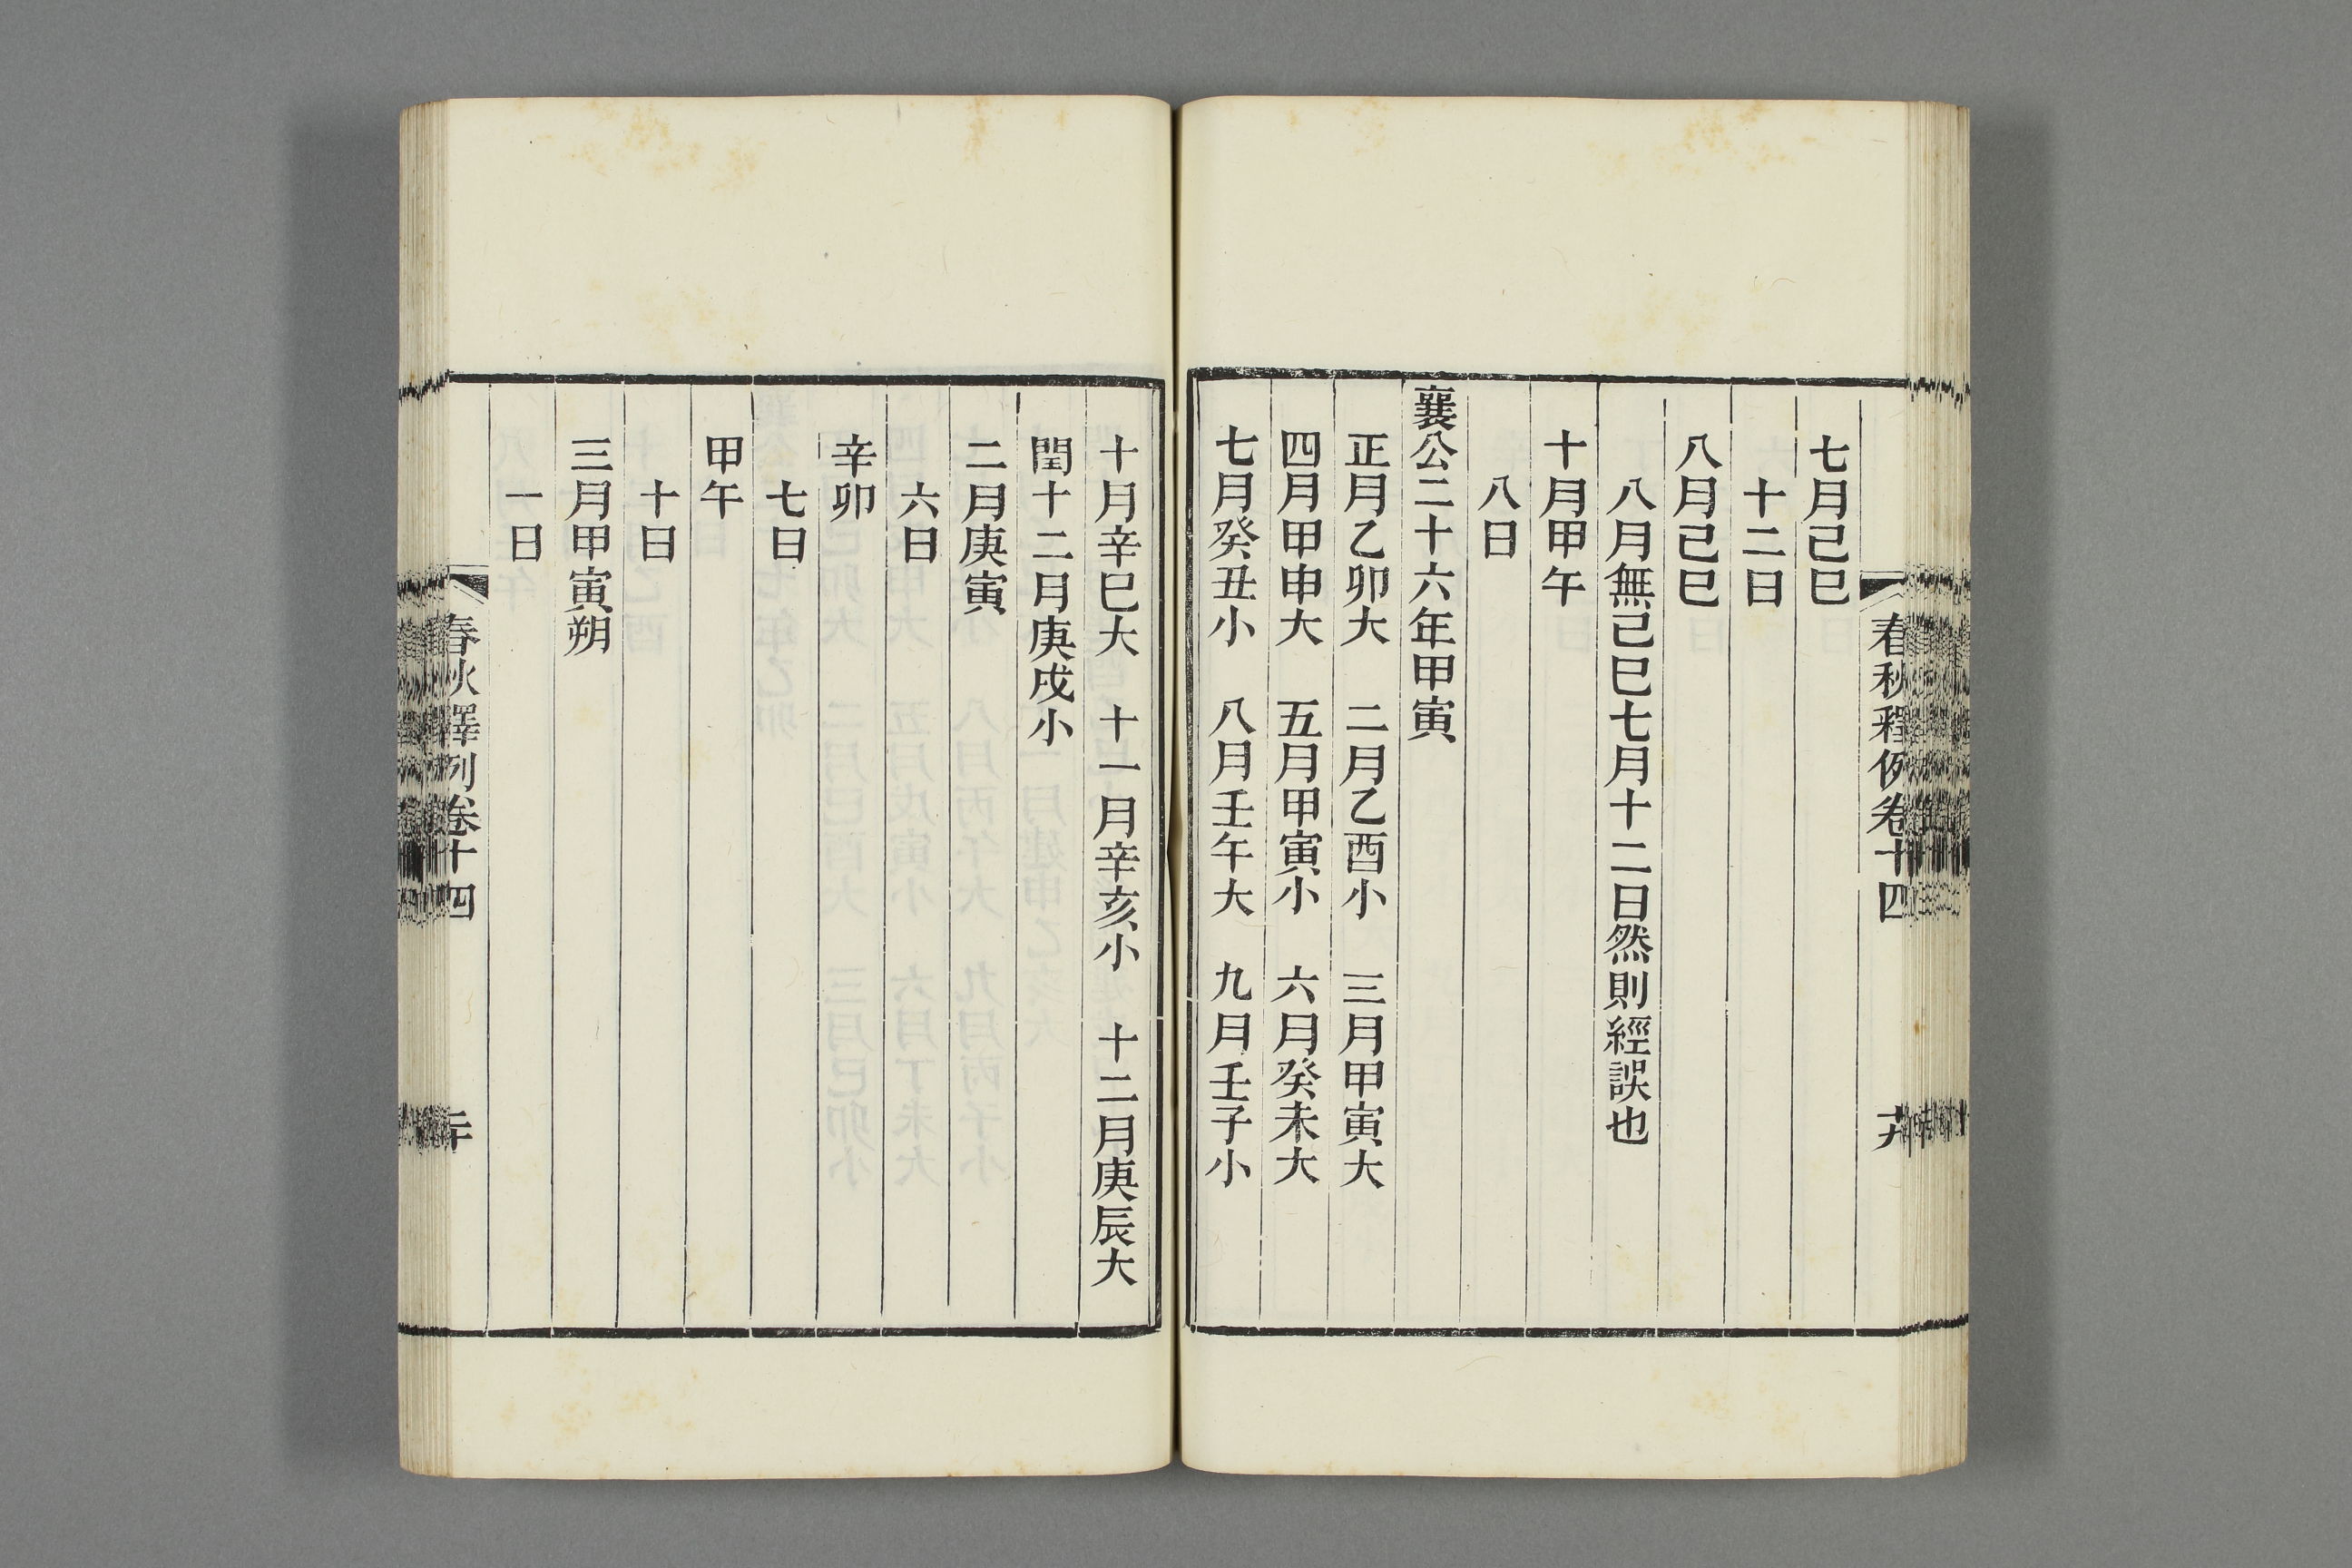 春秋釋例卷十四
七月己巳
十二日
八月己巳
八月無己巳七月十二日然則經誤也
十月甲午
八日
襄公二十六年甲寅
正月乙卯大　二月乙酉小　三月甲寅大
四月甲申大　五月甲寅小　六月癸未大
七月癸丑小　八月壬午大　九月壬子小
十月辛巳大　十一月辛亥小　十二月庚辰大
閏十二月庚戌小
二月庚寅
六日
辛卯
七日
甲午
十日
三月甲寅朔
一日
春秋釋例卷十四